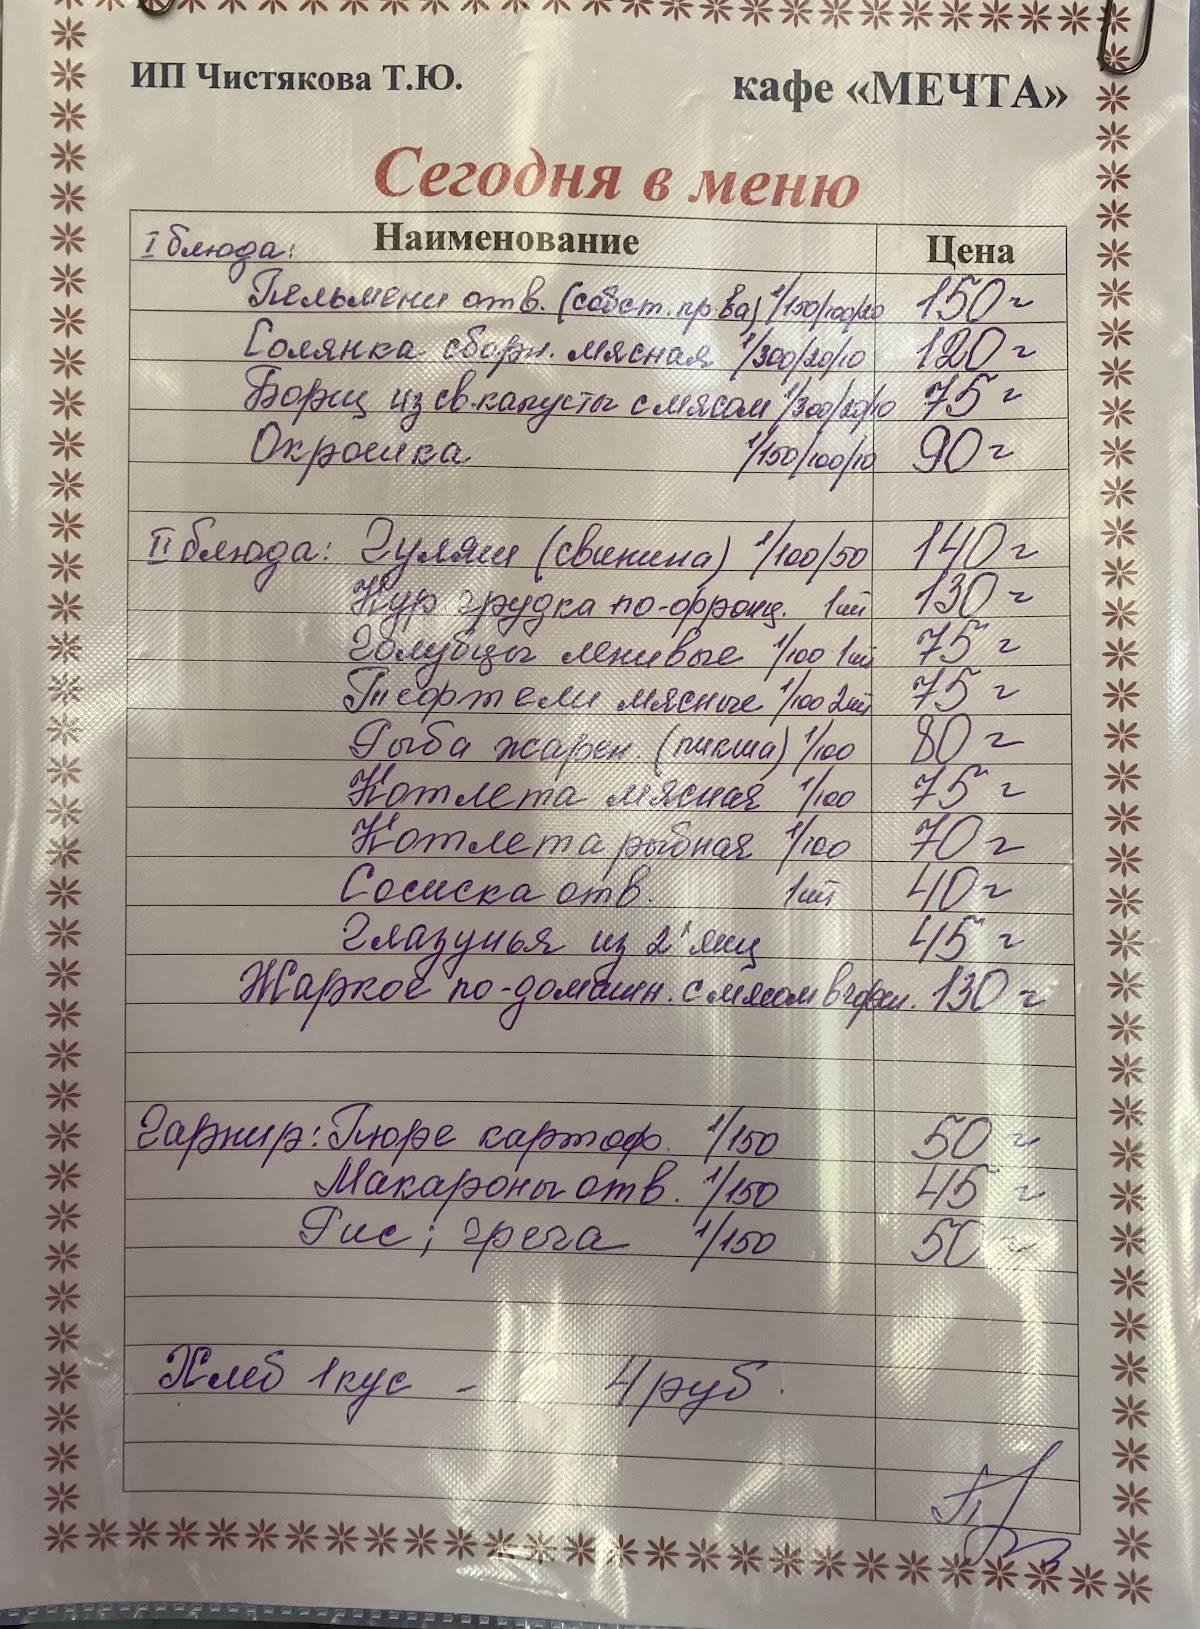 ИП Чистякова Т.Ю. кафе «МЕЧТА»
Сегодня в меню
I блюда: Наименование Цена
Пельмени отв. (собст. пр-ва) 1/150/100/20 150 г
Солянка сборн. мясная 1/300/20/10 120 г
Борщ из св.капусты с мясом 1/300/20/10 75 г
Окрошка 1/150/100/10 90 г
II блюда: Гуляш (свинина) 1/100/50 140 г
Кур грудка по-франц. 1шт 130 г
Голубцы ленивые 1/100 1шт 75 г
Тефтели мясные 1/100 2шт 75 г
Рыба жарен. (пикша) 1/100 80 г
Котлета мясная 1/100 75 г
Котлета рыбная 1/100 70 г
Сосиска отв. 1шт 40 г
Глазунья из 2 яиц 45 г
Жаркое по-домашн. с мясом в 130 г
Гарнир: Пюре картоф. 1/150 50 г
Макароны отв. 1/150 45 г
Рис; греча 1/150 50 г
Хлеб 1 кус - 4 руб.